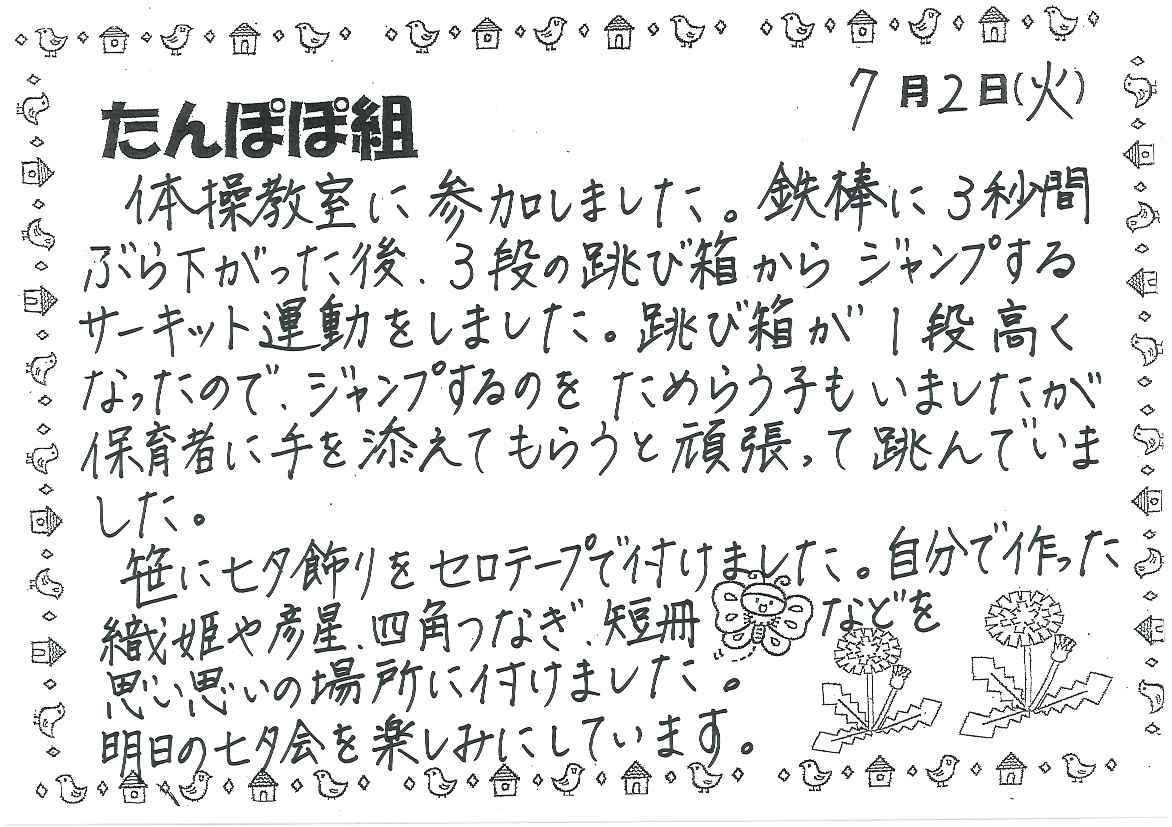 7月2日(火)
たんぽぽ組
体操教室に参加しました。鉄棒に3秒間
ぶら下がった後、3段の跳び箱からジャンプする
サーキット運動をしました。跳び箱が1段高く
なったので、ジャンプするのをためらう子もいましたが
保育者に手を添えてもらうと頑張って跳んでいま
した。
笹に七夕飾りをセロテープで付けました。自分で作った
織姫や彦星、四角つなぎ、短冊などを
思い思いの場所に付けました。
明日の七夕会を楽しみにしています。